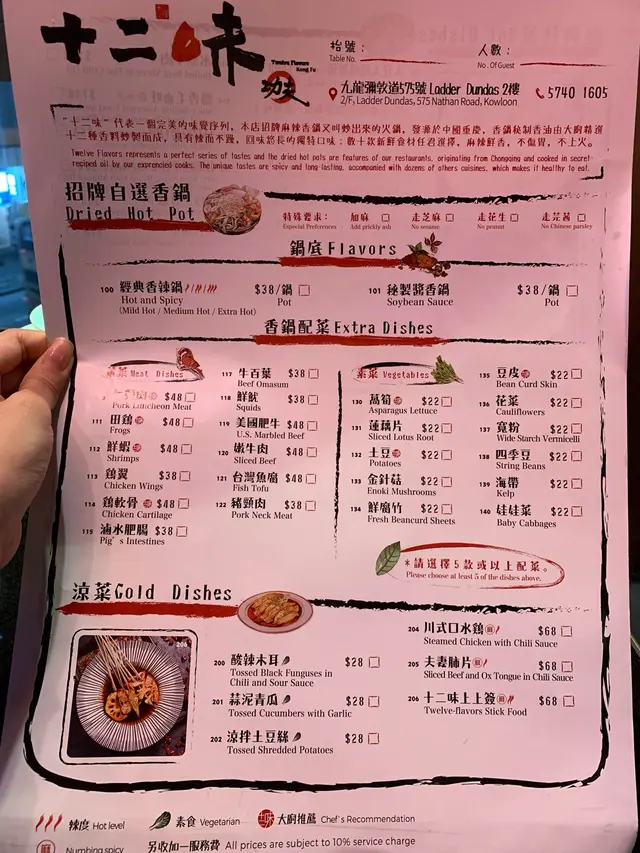 十二味
Twelve Flavors
Kung Fu
功夫
枱號：
Table No.
人數：
No. Of Guest
九龍彌敦道575號 Ladder Dundas 2樓
2/F, Ladder Dundas, 575 Nathan Road, Kowloon
5740 1605
"十二味" 代表一個完美的味覺序列，本店招牌麻辣香鍋又叫炒出來的火鍋，發源於中國重慶，香鍋秘製香油由大廚精選
十二種香料炒製而成，具有辣而不躁，回味悠長的獨特口味；數十款新鮮食材任君選擇，麻辣鮮香，不傷胃，不上火。
Twelve Flavors represents a perfect series of tastes and the dried hot pots are features of our restaurants, originating from Chongqing and cooked in secret-
recipied oil by our exprencied cooks. The unique tastes are spicy and long lasting, accompanied with dozens of others cuisines, which makes it healthy to eat.
招牌自選香鍋
Dried Hot Pot
特殊要求：
Especial Preferences
加麻
Add prickly ash
走芝麻
No sesame
走花生
No peanut
走芫茜
No Chinese parsley
鍋底 Flavors
100 經典香辣鍋 $38/鍋
Hot and Spicy Pot
(Mild Hot / Medium Hot / Extra Hot)
101 秘製醬香鍋 $38/鍋
Soybean Sauce Pot
香鍋配菜 Extra Dishes
葷菜 Meat Dishes
$48
Pork Luncheon Meat
111 田鷄 $48
Frogs
112 鮮蝦 $48
Shrimps
113 鷄翼 $38
Chicken Wings
114 鷄軟骨 $48
Chicken Cartilage
115 滷水肥腸 $38
Pig's Intestines
117 牛百葉 $38
Beef Omasum
118 鮮魷 $38
Squids
119 美國肥牛 $48
U.S. Marbled Beef
120 嫩牛肉 $48
Sliced Beef
121 台灣魚腐 $48
Fish Tofu
122 豬頸肉 $38
Pork Neck Meat
素菜 Vegetables
130 萵筍 $22
Asparagus Lettuce
131 蓮藕片 $22
Sliced Lotus Root
132 土豆 $22
Potatoes
133 金針菇 $22
Enoki Mushrooms
134 鮮腐竹 $22
Fresh Beancurd Sheets
135 豆皮 $22
Bean Curd Skin
136 花菜 $22
Cauliflowers
137 寬粉 $22
Wide Starch Vermicelli
138 四季豆 $22
String Beans
139 海帶 $22
Kelp
140 娃娃菜 $22
Baby Cabbages
*請選擇5款或以上配菜。
Please choose at least 5 of the dishes above.
涼菜 Gold Dishes
206
200 酸辣木耳 $28
Tossed Black Funguses in
Chili and Sour Sauce
201 蒜泥青瓜 $28
Tossed Cucumbers with Garlic
202 涼拌土豆絲 $28
Tossed Shredded Potatoes
204 川式口水鷄 麻 $68
Steamed Chicken with Chili Sauce
205 夫妻肺片 麻 $68
Sliced Beef and Ox Tongue in Chili Sauce
206 十二味上上簽 麻 $68
Twelve-flavors Stick Food
辣度 Hot level
素食 Vegetarian
大廚推薦 Chef's Recommendation
麻 Numbing spicy
另收加一服務費 All prices are subject to 10% service charge